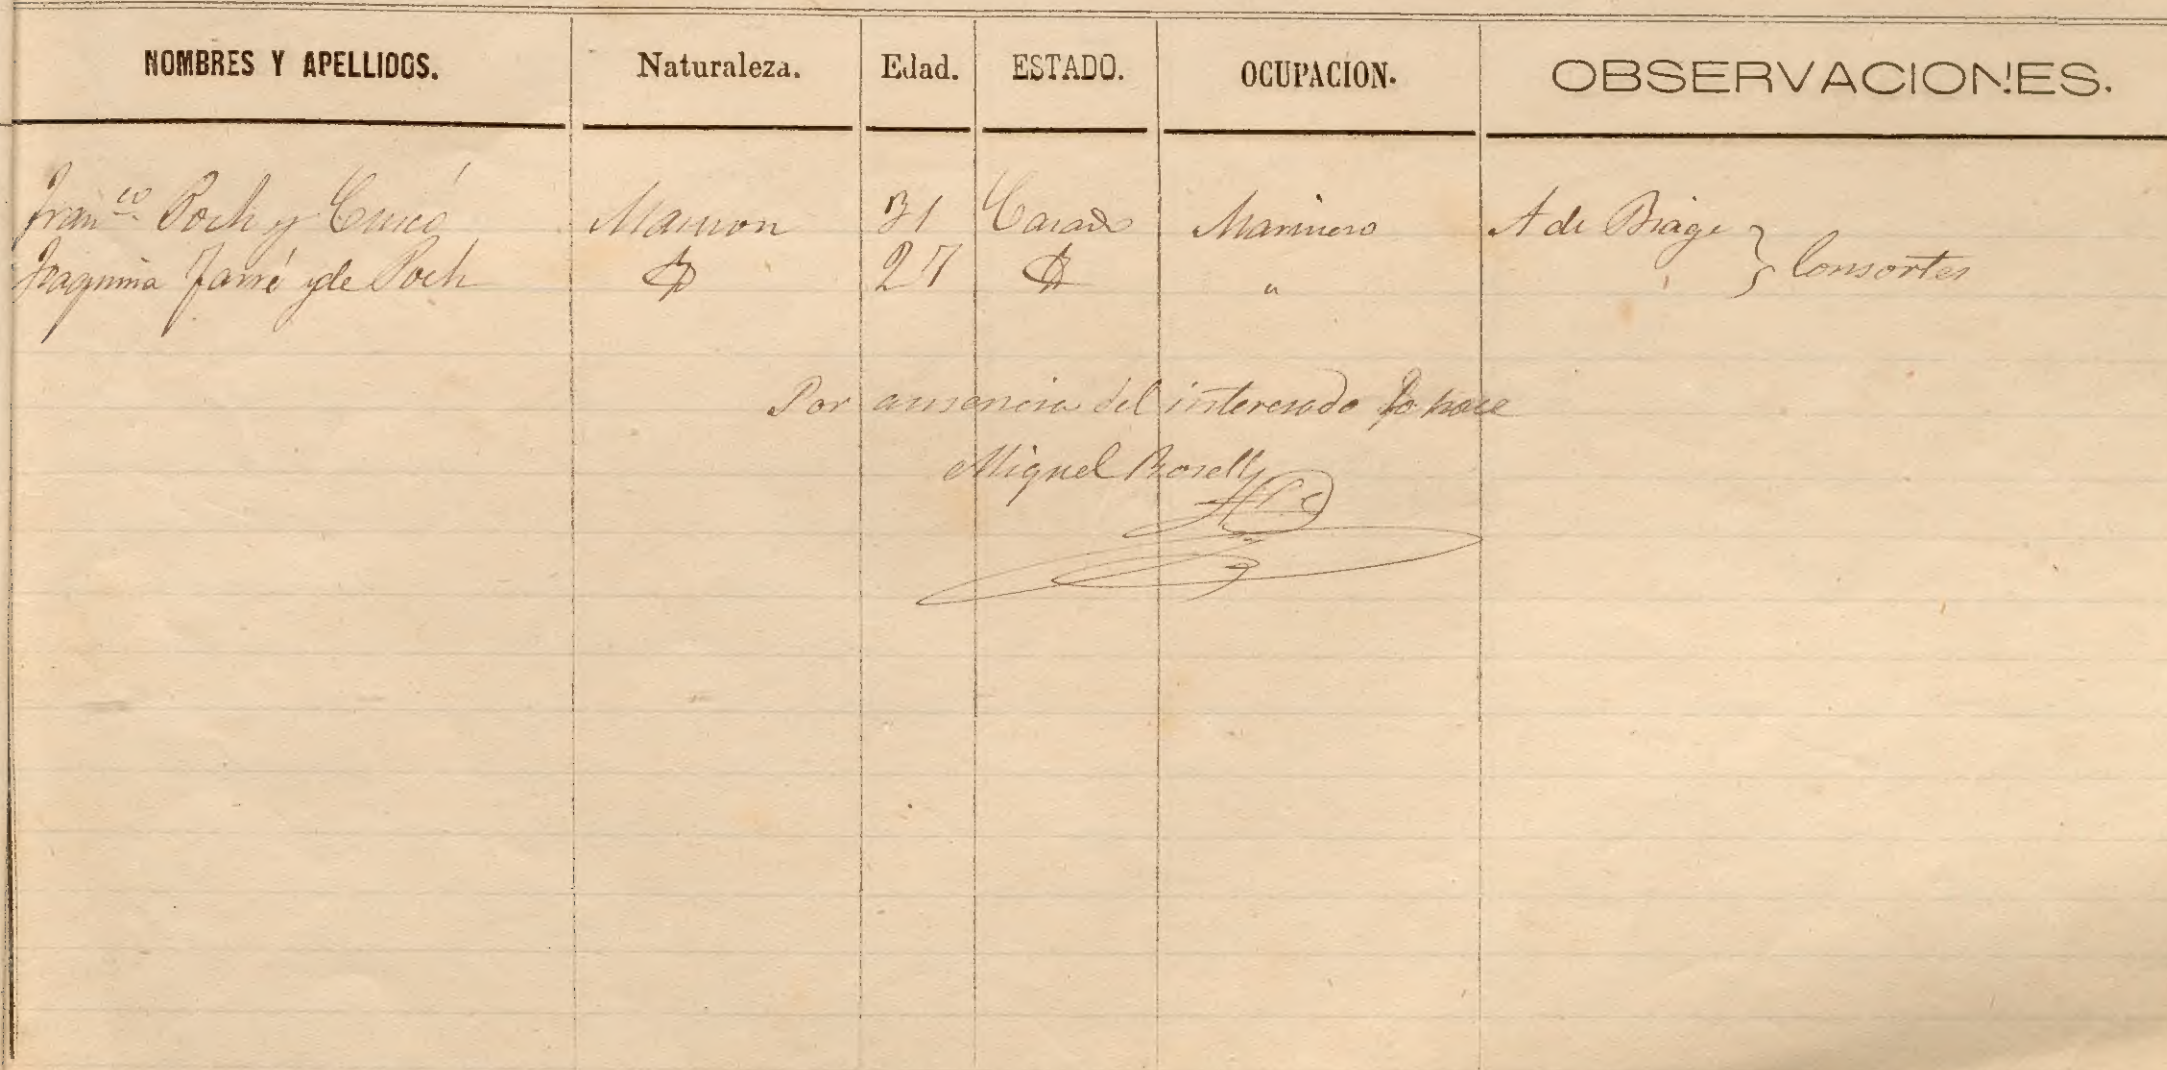 NOMBRES Y APELLIDOS. Naturaleza. Edad. ESTADO. OCUPACION. OBSERVACIONES.
Fran.co Poch y Cuicó Masnou 31 Casado Marinero A de Biage } Consortes
Joaquina Farré y de Poch 27 "
Por ausencia del interesado lo hace
Miguel Rosell